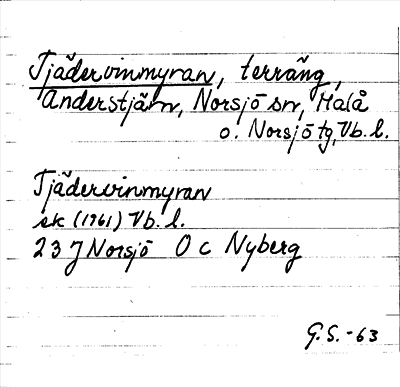 Tjädervinmyran, terräng,
Anderstjärn, Norsjö sn, Malå
o. Norsjö tg, Vb. l.
Tjädervinmyran
ek (1961) Vb. l.
23 J Norsjö O c Nyberg
G. S. -63